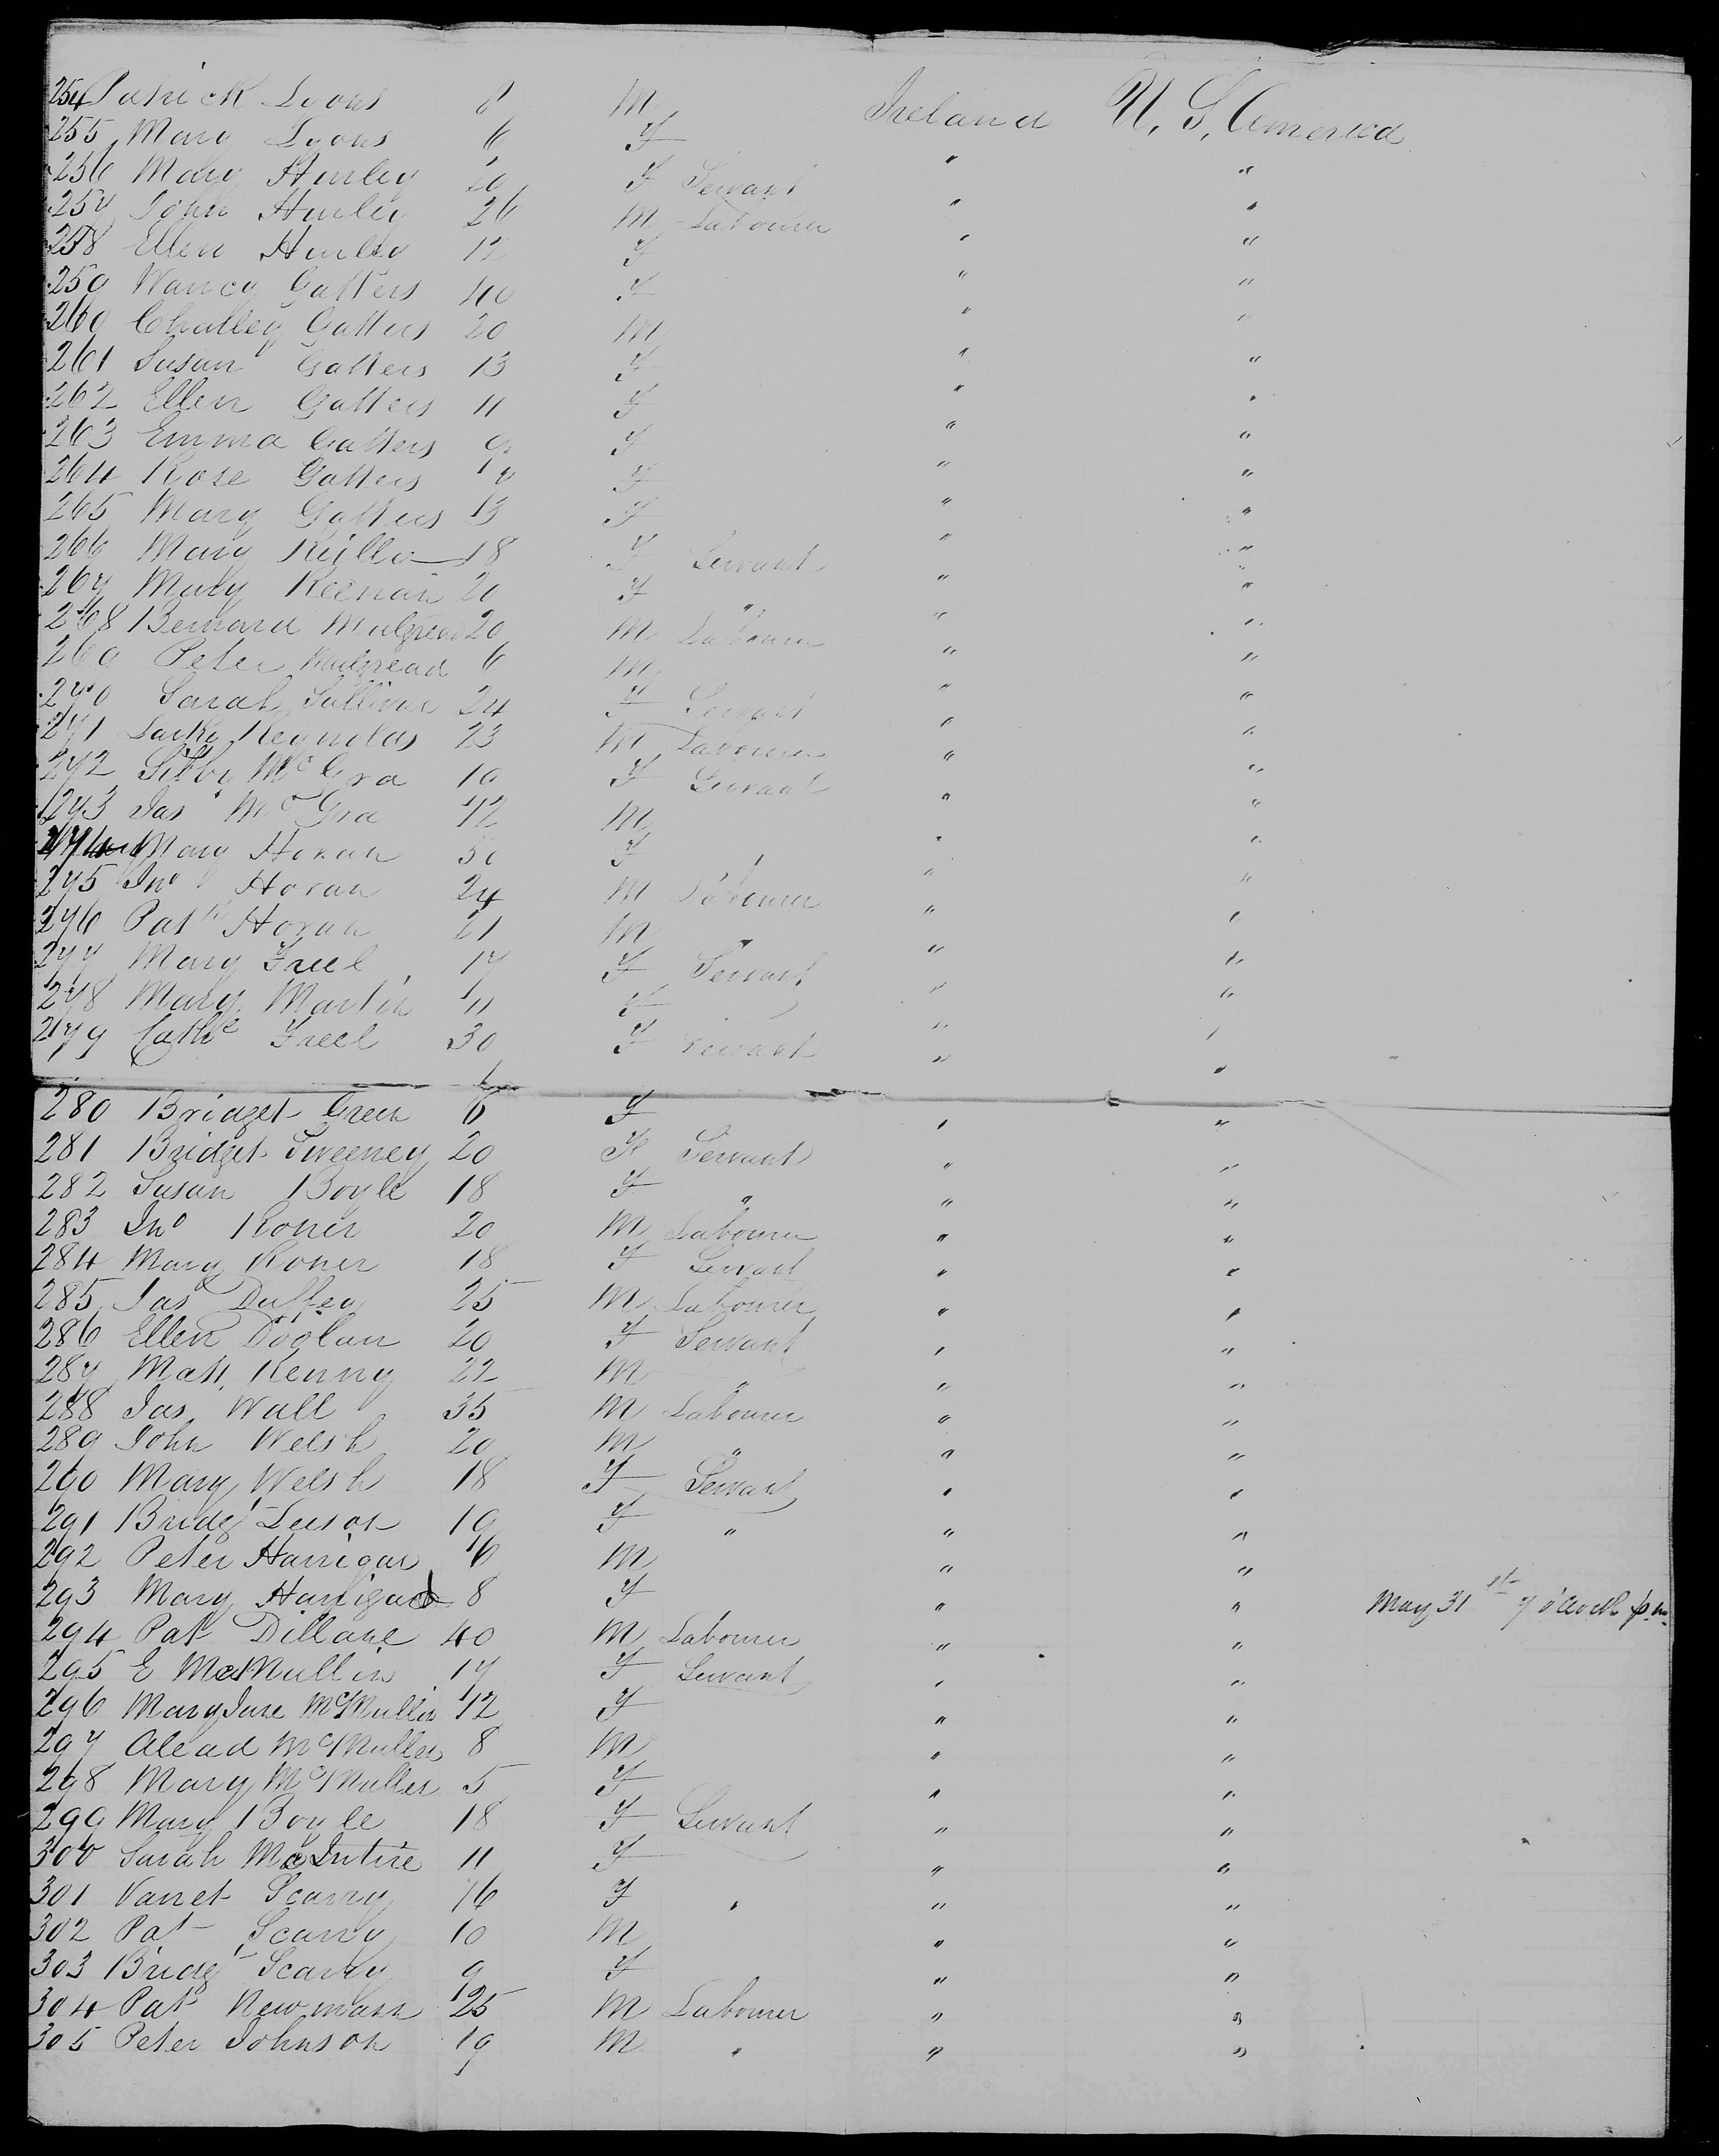 254 Patrick Lyons 8 M Ireland U. S. America
255 Mary Lyons 6 F " "
256 Mary Hurley 20 F Servant " "
257 John Hurley 26 M Labourer " "
258 Ellen Hurley 12 F " "
259 Nancy Gatters 40 F " "
260 Gatters 20 M " "
261 Susan Gatters 13 F " "
262 Ellen Gatters 11 F " "
263 Emma Gatters 9 F " "
264 Rose Gatters F " "
265 Mary Gatters 13 F " "
266 Mary 18 F Servant " "
267 Mary Keenan 20 F " " "
268 Bernard Mulgread 20 M Labourer " "
269 Peter Mulgread 6 M " "
270 Sarah Sullivan 24 F Servant " "
271 Reynolds 23 M Labourer " "
272 Sibby McGra 19 F Servant " "
273 Jas McGra 12 M " "
274 Mary Horan 50 F " "
275 Jno Horan 24 M Labourer " "
276 Patk Horan 21 M " " "
277 Mary Freel 17 F Servant " "
278 Mary Martin 11 F " "
279 Cathe Freel 30 F Servant " "
280 Bridget Green 6 F " "
281 Bridget Sweeney 20 F Servant " "
282 Susan Boyle 18 F " " "
283 Jno Roner 20 M Labourer " "
284 Mary Roner 18 F Servant " "
285 Jas Duffey 25 M Labourer " "
286 Ellen Doolan 20 F Servant " "
287 Matt Kenny 22 M " " "
288 Jas Wall 35 M Labourer " "
289 John Welsh 20 M " " "
290 Mary Welsh 18 F Servant " "
291 Bridgt Leeson 19 F " " "
292 Peter Harrigan M " "
293 Mary Harrigan 8 F " " May 31st 7 o'clock p.m.
294 Pat Dillane 40 M Labourer " "
295 E McMullin 17 F Servant " "
296 Mary Jane McMullin 12 F " "
297 McMullen 8 M " "
298 Mary McMullen 5 F " "
299 Mary Boyle 18 F Servant " "
300 Sarah McIntire 11 F " "
301 Scarry 16 F " " "
302 Pat Scarry 10 M " "
303 Bridgt Scarry 9 F " "
304 Pat Newmann 25 M Labourer " "
305 Peter Johnson 19 M " " "